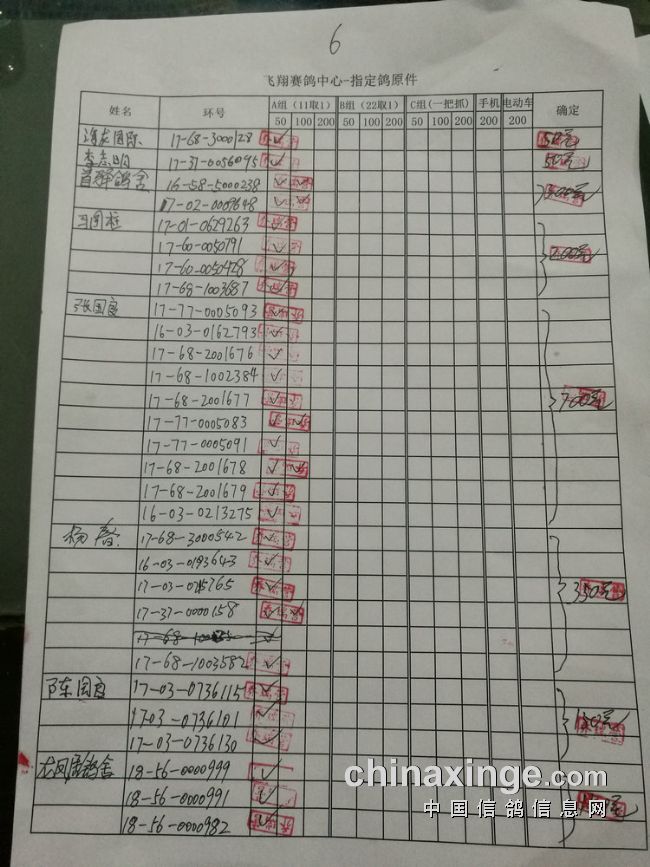 6
飞翔赛鸽中心-指定鸽原件
姓名 环号 A组（11取1） B组（22取1） C组（一把抓） 手机 电动车 确定
50 100 200 50 100 200 50 100 200 200 200
17-68-3000128 ✓ 50元
17-37-0056095 ✓ 50元
首翔鸽舍 16-58-5000238 ✓ ✓
17-02-0009648 ✓ ✓
17-01-0629263 ✓ 200元
17-60-0050791 ✓
17-60-0050428 ✓
17-68-1003687 ✓
张国良 17-77-0005093 ✓ ✓ 700元
16-03-0162793 ✓
17-68-2001676 ✓
17-68-1002384 ✓
17-68-2001677 ✓
17-77-0005083 ✓ ✓
17-77-0005091 ✓
17-68-2001678 ✓ ✓
17-68-2001679 ✓
16-03-0213275 ✓
杨春 17-68-3000542 ✓ 350元
16-03-0193643 ✓
17-03-0715765 ✓
17-37-0000158 ✓ ✓
17-68-1003582 ✓
陈国良 17-03-0736115 ✓
17-03-0736101 ✓
17-03-0736130 ✓
18-56-0000999 ✓
18-56-0000991 ✓
18-56-0000982 ✓
chinaxinge.com
中国信鸽信息网